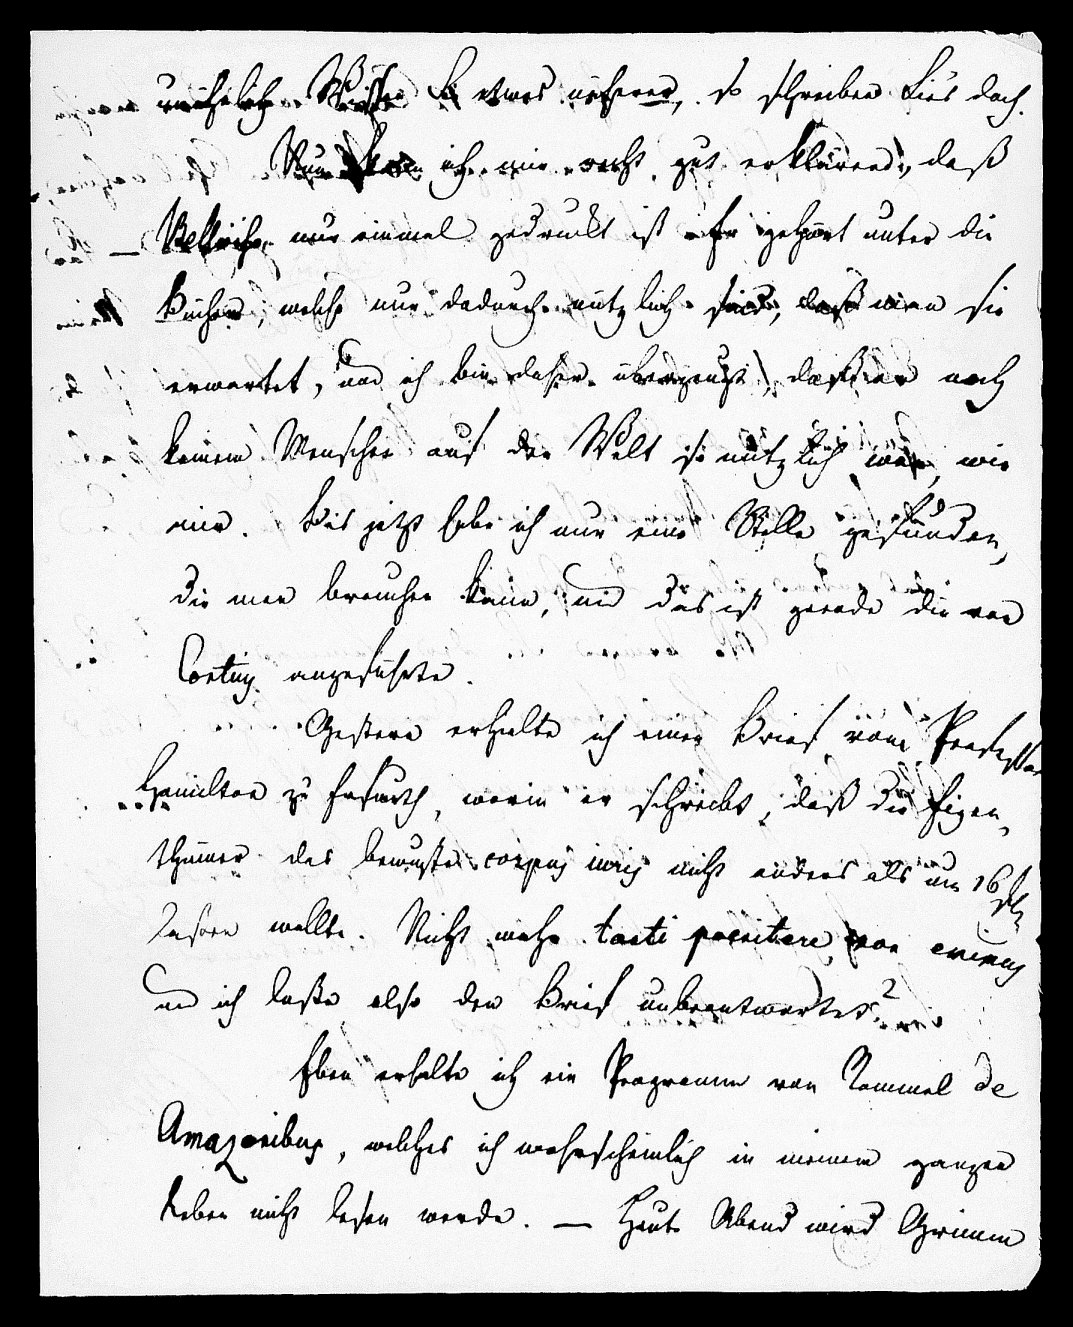 etwas näheres, so schreiben Sie's doch.
Nun kann ich mir recht gut erklären, daß
nur einmal gedruckt ist er gehört unter die
Bücher, welche nur dadurch nützlich sind, daß man sie
erwartet, und ich bin daher überzeugt, daß er noch
keinem Menschen auf der Welt so nützlich war, wie
mir. Bis jetzt habe ich nur eine Stelle gefunden,
die man brauchen kann, und das ist gerade die von
angeführte.
Gestern erhielte ich einen Brief vom Professor
zu Erfurth, worin er schreibt, daß die Eigen-
thümer des bewußten corpus iuris nicht anders als um 16
lassen wollte. Nicht wahr tanti poenitere non emimus
und ich laße also den Brief unbeantwortet?
Eben erhalte ich ein Programm von Rommel de
Amazonibus, welches ich wahrscheinlich in meinem ganzen
Leben nicht lesen werde. — Heute Abend wird Grimm